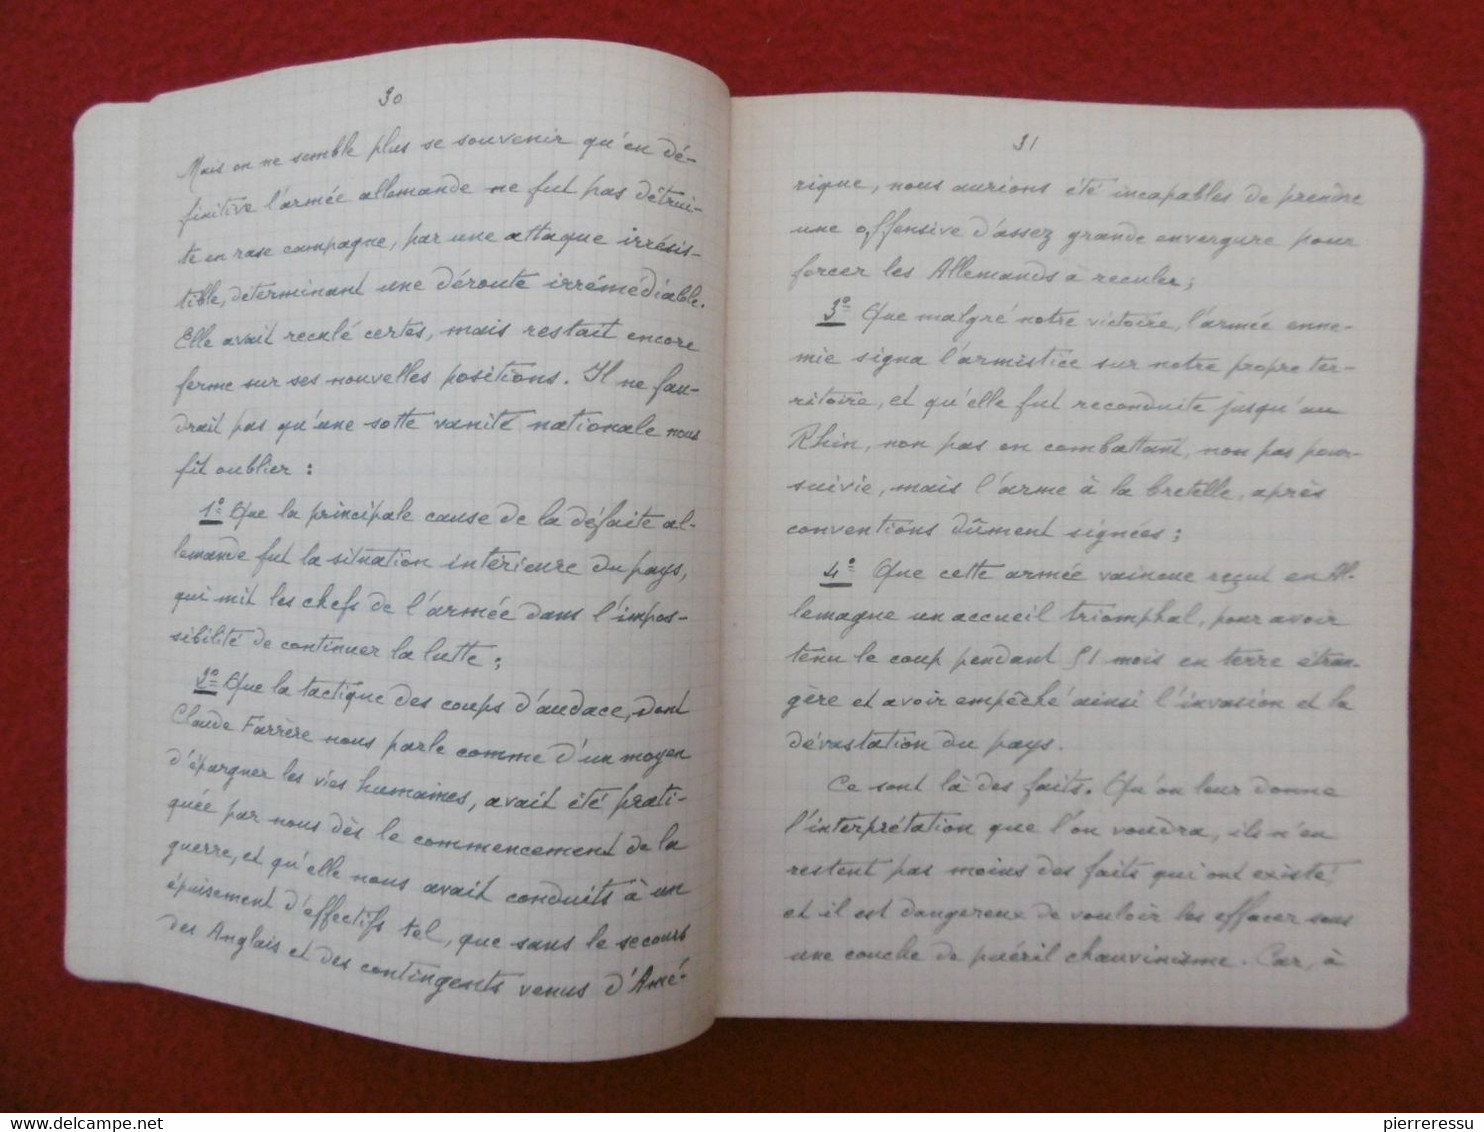 30
Mais on ne semble plus se souvenir qu'en dé-
finitive l'armée allemande ne fut pas détrui-
te en rase campagne, par une attaque irrésis-
tible, déterminant une déroute irrémédiable.
Elle avait reculé certes, mais restait encore
ferme sur ses nouvelles positions. Il ne fau-
drait pas qu'une sotte vanité nationale nous
fît oublier :
1º Que la principale cause de la défaite al-
lemande fut la situation intérieure du pays,
qui mit les chefs de l'armée dans l'impos-
sibilité de continuer la lutte ;
2º Que la tactique des coups d'audace, dont
Claude Farrère nous parle comme d'un moyen
d'épargner les vies humaines, avait été prati-
quée par nous dès le commencement de la
guerre, et qu'elle nous avait conduits à un
épuisement d'effectifs tel, que sans le secours
des Anglais et des contingents venus d'Amé-
31
rique, nous aurions été incapables de prendre
une offensive d'assez grande envergure pour
forcer les Allemands à reculer ;
3º Que malgré notre victoire, l'armée enne-
mie signa l'armistice sur notre propre ter-
ritoire, et qu'elle fut reconduite jusqu'au
Rhin, non pas en combattant, non pas pour-
suivie, mais l'arme à la bretelle, après
conventions dûment signées ;
4º Que cette armée vaincue reçut en Al-
lemagne un accueil triomphal, pour avoir
tenu le coup pendant 51 mois en terre étran-
gère et avoir empêché ainsi l'invasion et la
dévastation du pays.
Ce sont là des faits. Qu'on leur donne
l'interprétation que l'on voudra, ils n'en
restent pas moins des faits qui ont existé,
et il est dangereux de vouloir les effacer sous
une couche de puéril chauvinisme. Car, à
delcampe.net
pierreressu